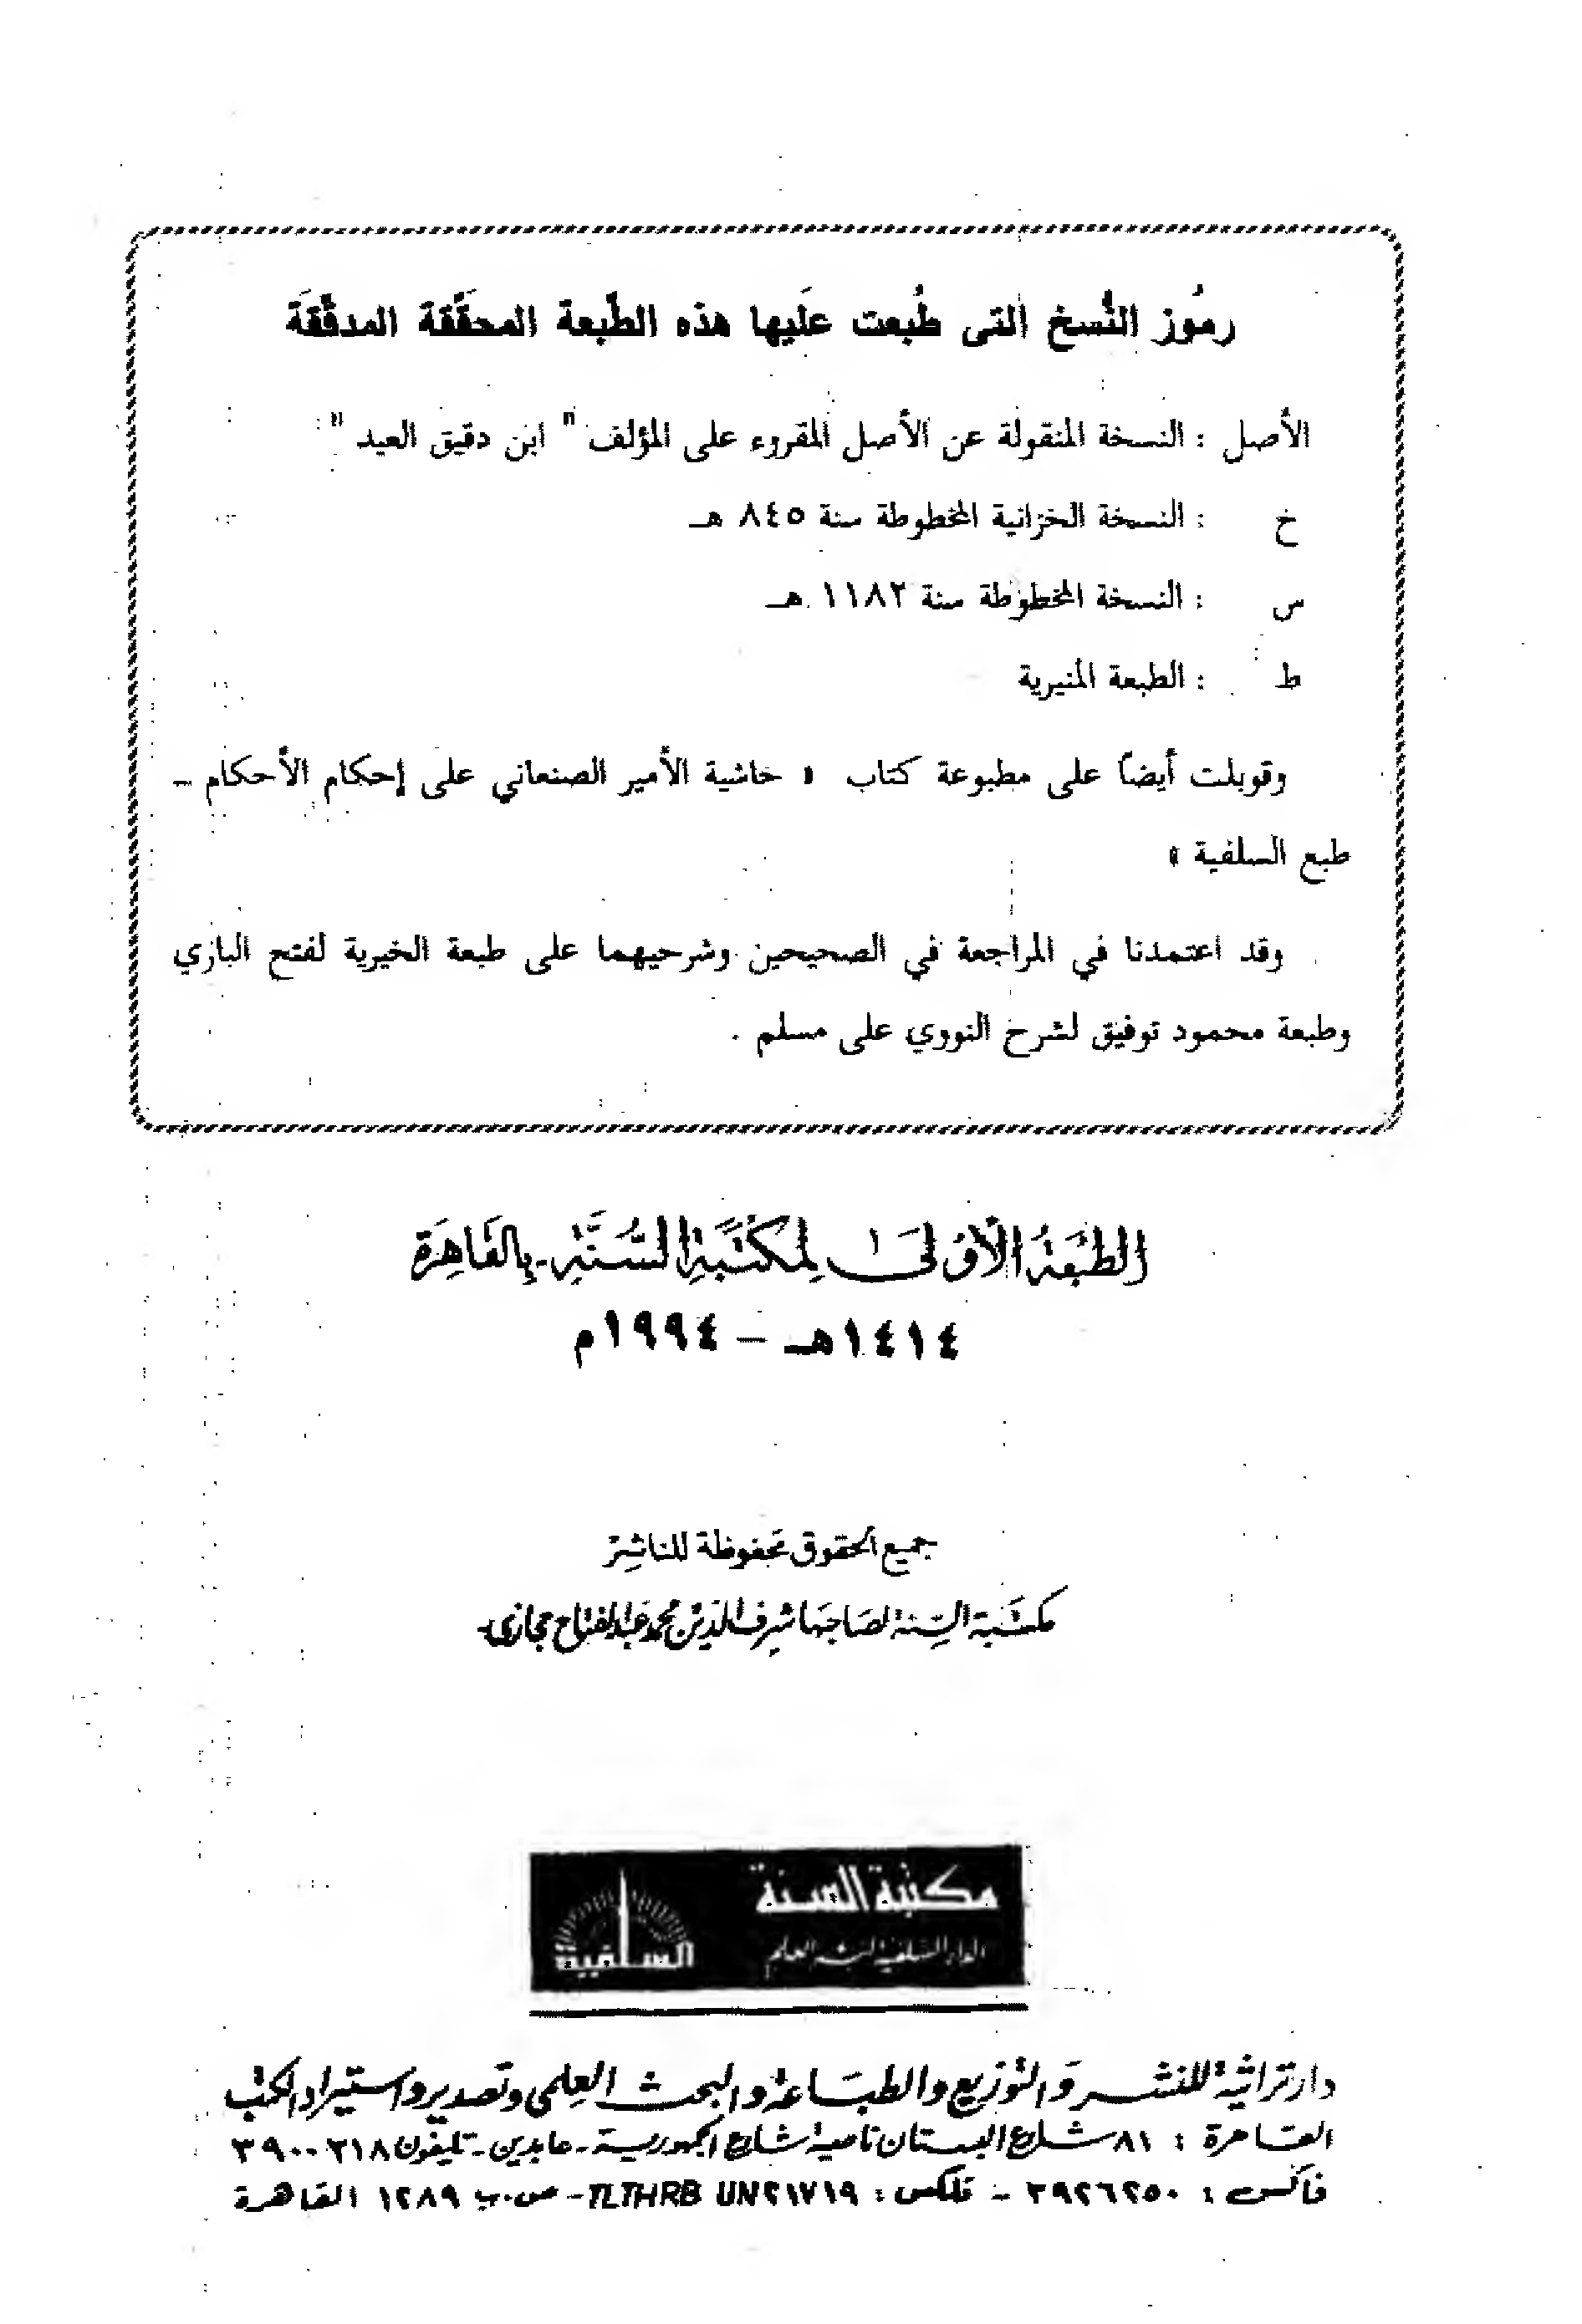 رمُوز النُّسخ التى طُبعت عَليها هذه الطَّبعة المحقَّقة المدقَّقَة
الأصل : النسخة المنقولة عن الأصل المقروء على المؤلف " ابن دقيق العيد "
خ : النسخة الخزانية المخطوطة سنة ٨٤٥ هـ
س : النسخة المخطوطة سنة ١١٨٢ هـ
ط : الطبعة المنيرية
وقوبلت أيضاً على مطبوعة كتاب « حاشية الأمير الصنعاني على إحكام الأحكام –
طبع السلفية »
وقد اعتمدنا في المراجعة في الصحيحين وشرحيهما على طبعة الخيرية لفتح الباري
وطبعة محمود توفيق لشرح النووي على مسلم .
الطبعَة الأولىٰ لمكتَبةِ السُّنَّةِ - بالقَاهِرَة
١٤١٤هـ – ١٩٩٤م
جميع الحقوق محفوظة للناشِر
مكتَبة السنة لصَاحبَها شرف الدين محمد عبد الفتاح حجازى
مكتبة السنة
الدار السلفية لنشر العلم
السلفية
دار تراثية للنشر والتوزيع والطبَاعة والبحث العِلمى وتصدير واستيراد الكتب
القاهرة : ٨١ شارع البستان ناصية شارع الجمهورية - عابدين - تليفون ٣٩٠٠٣١٨
فاكس : ٣٩٢٦٢٥٠ - تلكس : ٢١٧١٩ TLTHRB UN - ص.ب ١٢٨٩ القاهرة